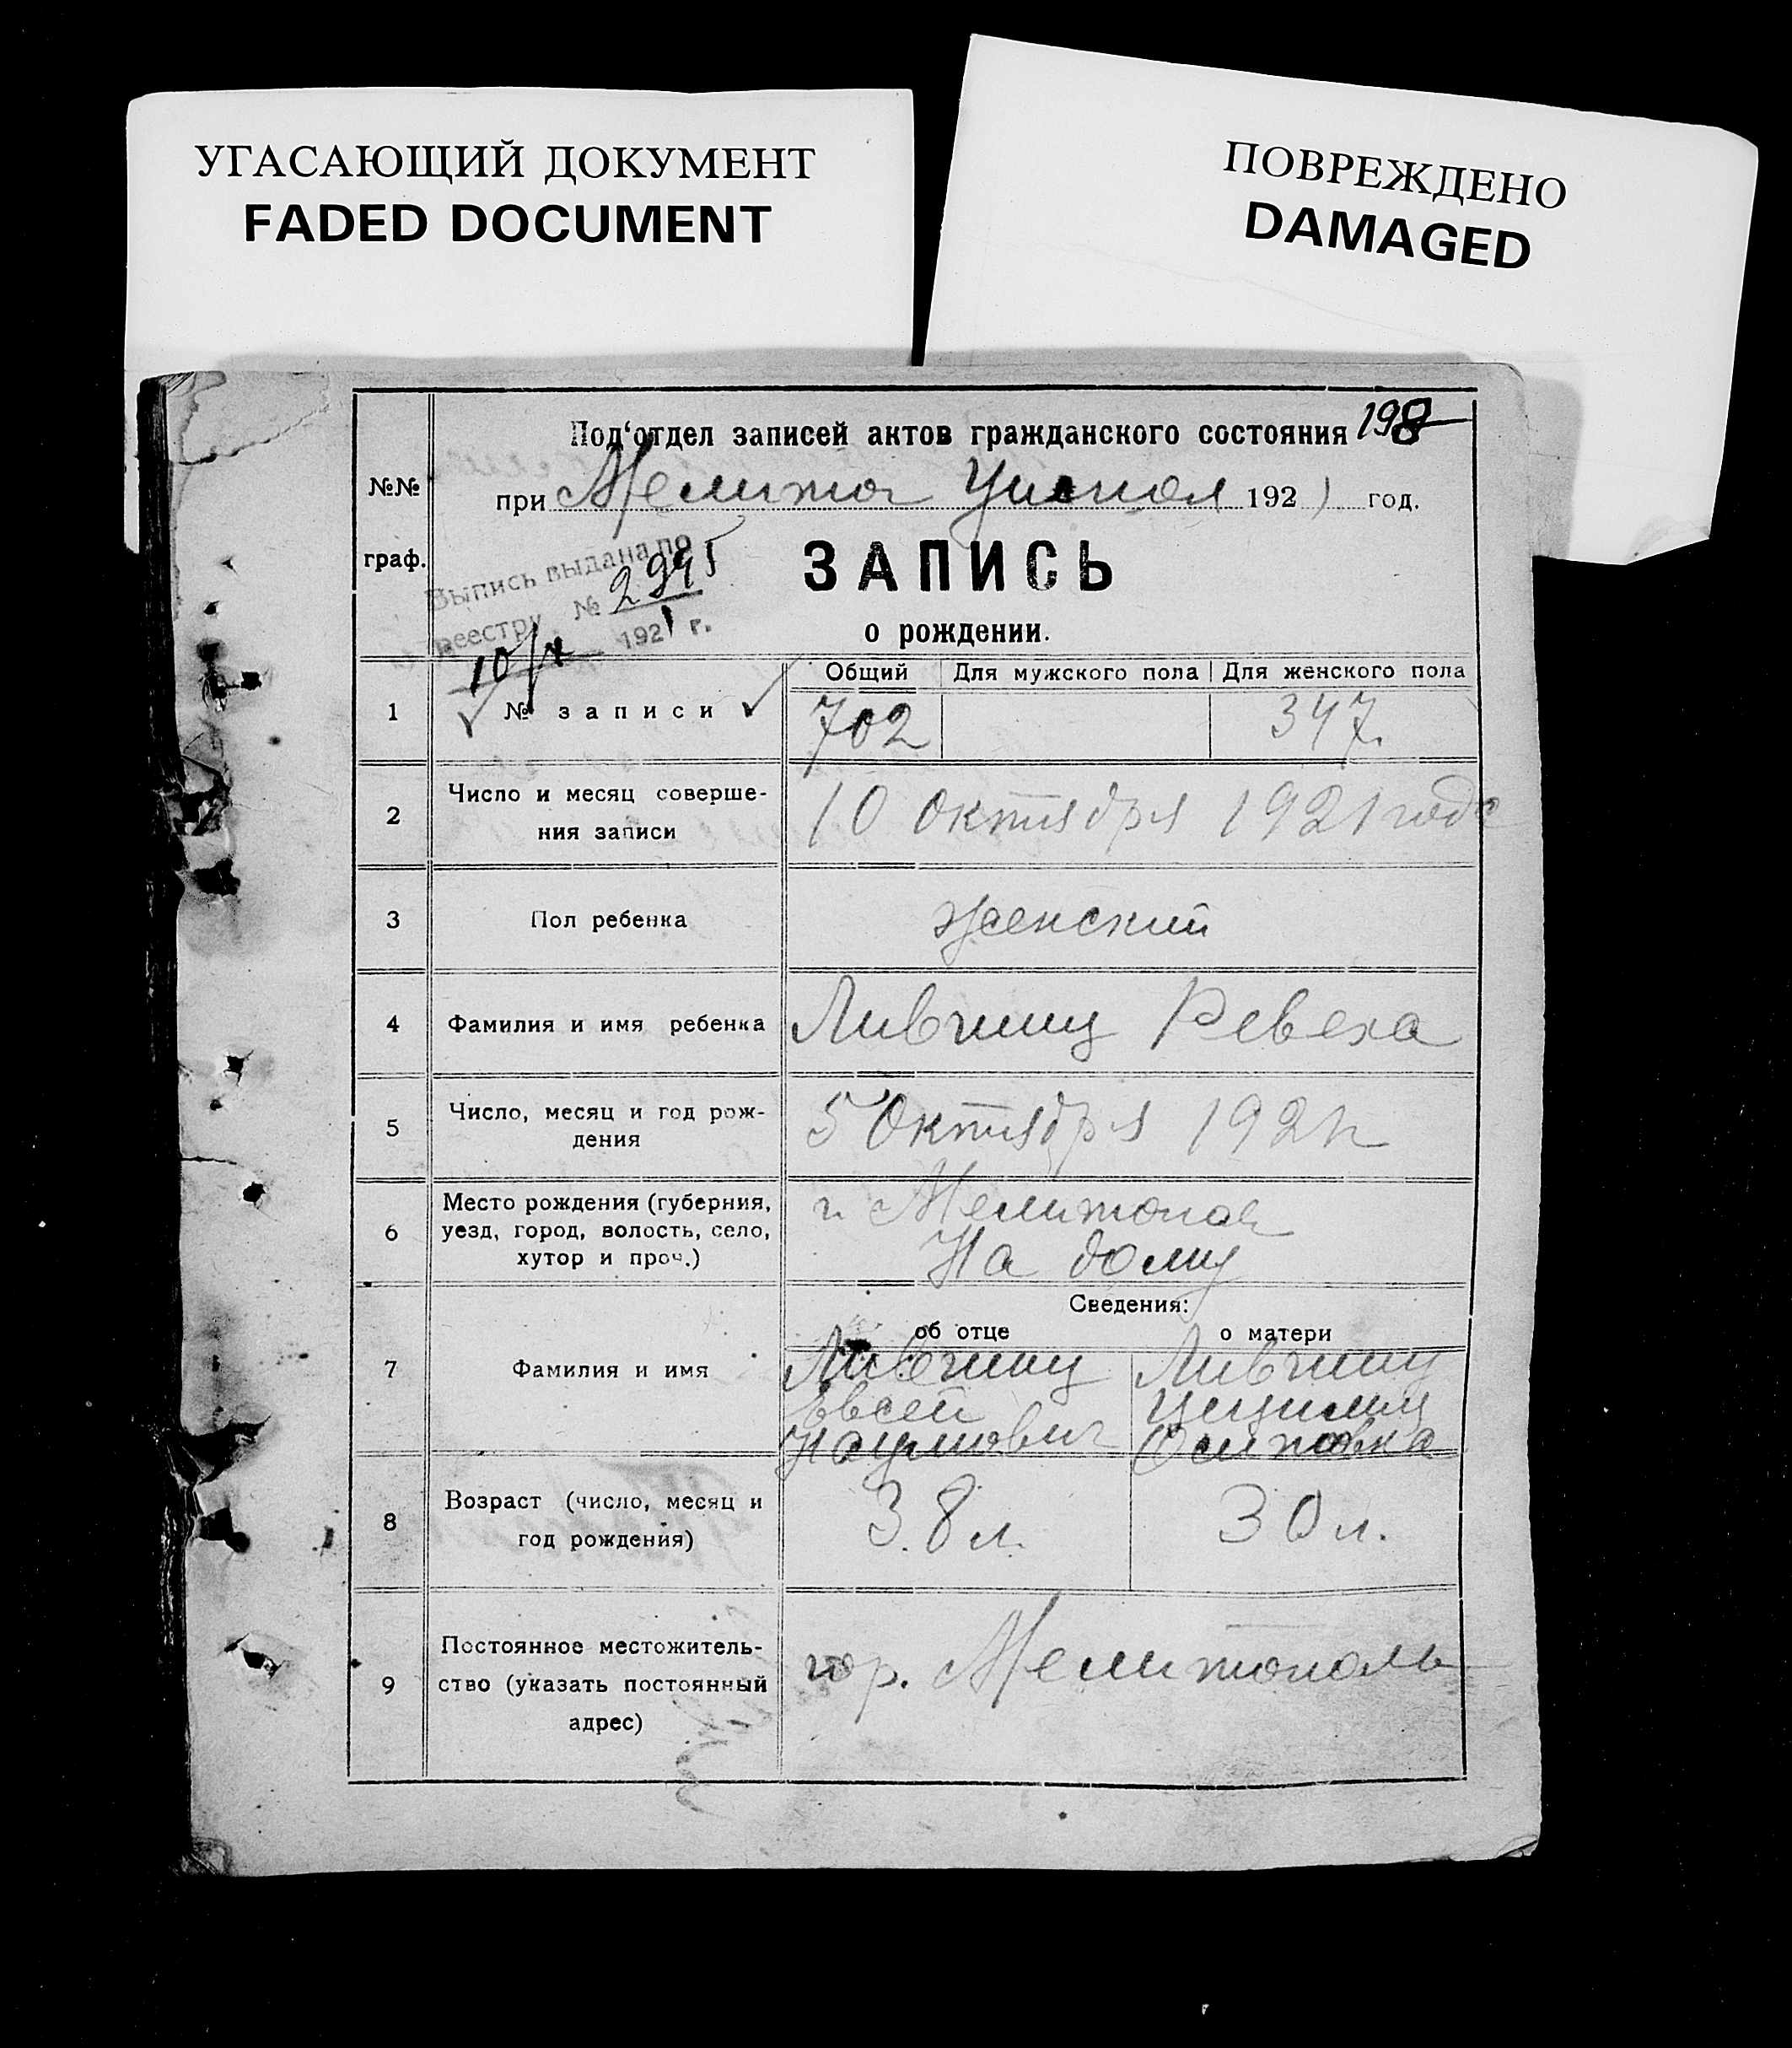 УГАСАЮЩИЙ ДОКУМЕНТ
FADED DOCUMENT
ПОВРЕЖДЕНО
DAMAGED
198
Под‘отдел записей актов гражданского состояния
№№
граф.
при Мелитоп 1921 год.
Выпись выдана по
реестру № 2995
1921 г.
ЗАПИСЬ
о рождении.
Общий Для мужского пола Для женского пола
1 № записи 702 347.
2 Число и месяц соверше-
ния записи
10 октября 1921 года
3 Пол ребенка женский
4 Фамилия и имя ребенка Лившиц Ревека
5 Число, месяц и год рож-
дения
5 Октября 1921 г
6 Место рождения (губерния,
уезд, город, волость, село,
хутор и проч.)
г. Мелитополь
На дому
Сведения:
об отце о матери
7 Фамилия и имя
Лившиц
Евсей
Наумович
Лившиц
Цецилия
Осиповна
8 Возраст (число, месяц и
год рождения)
38 л. 30 л.
9 Постоянное местожитель-
ство (указать постоянный
адрес)
гор. Мелитополь